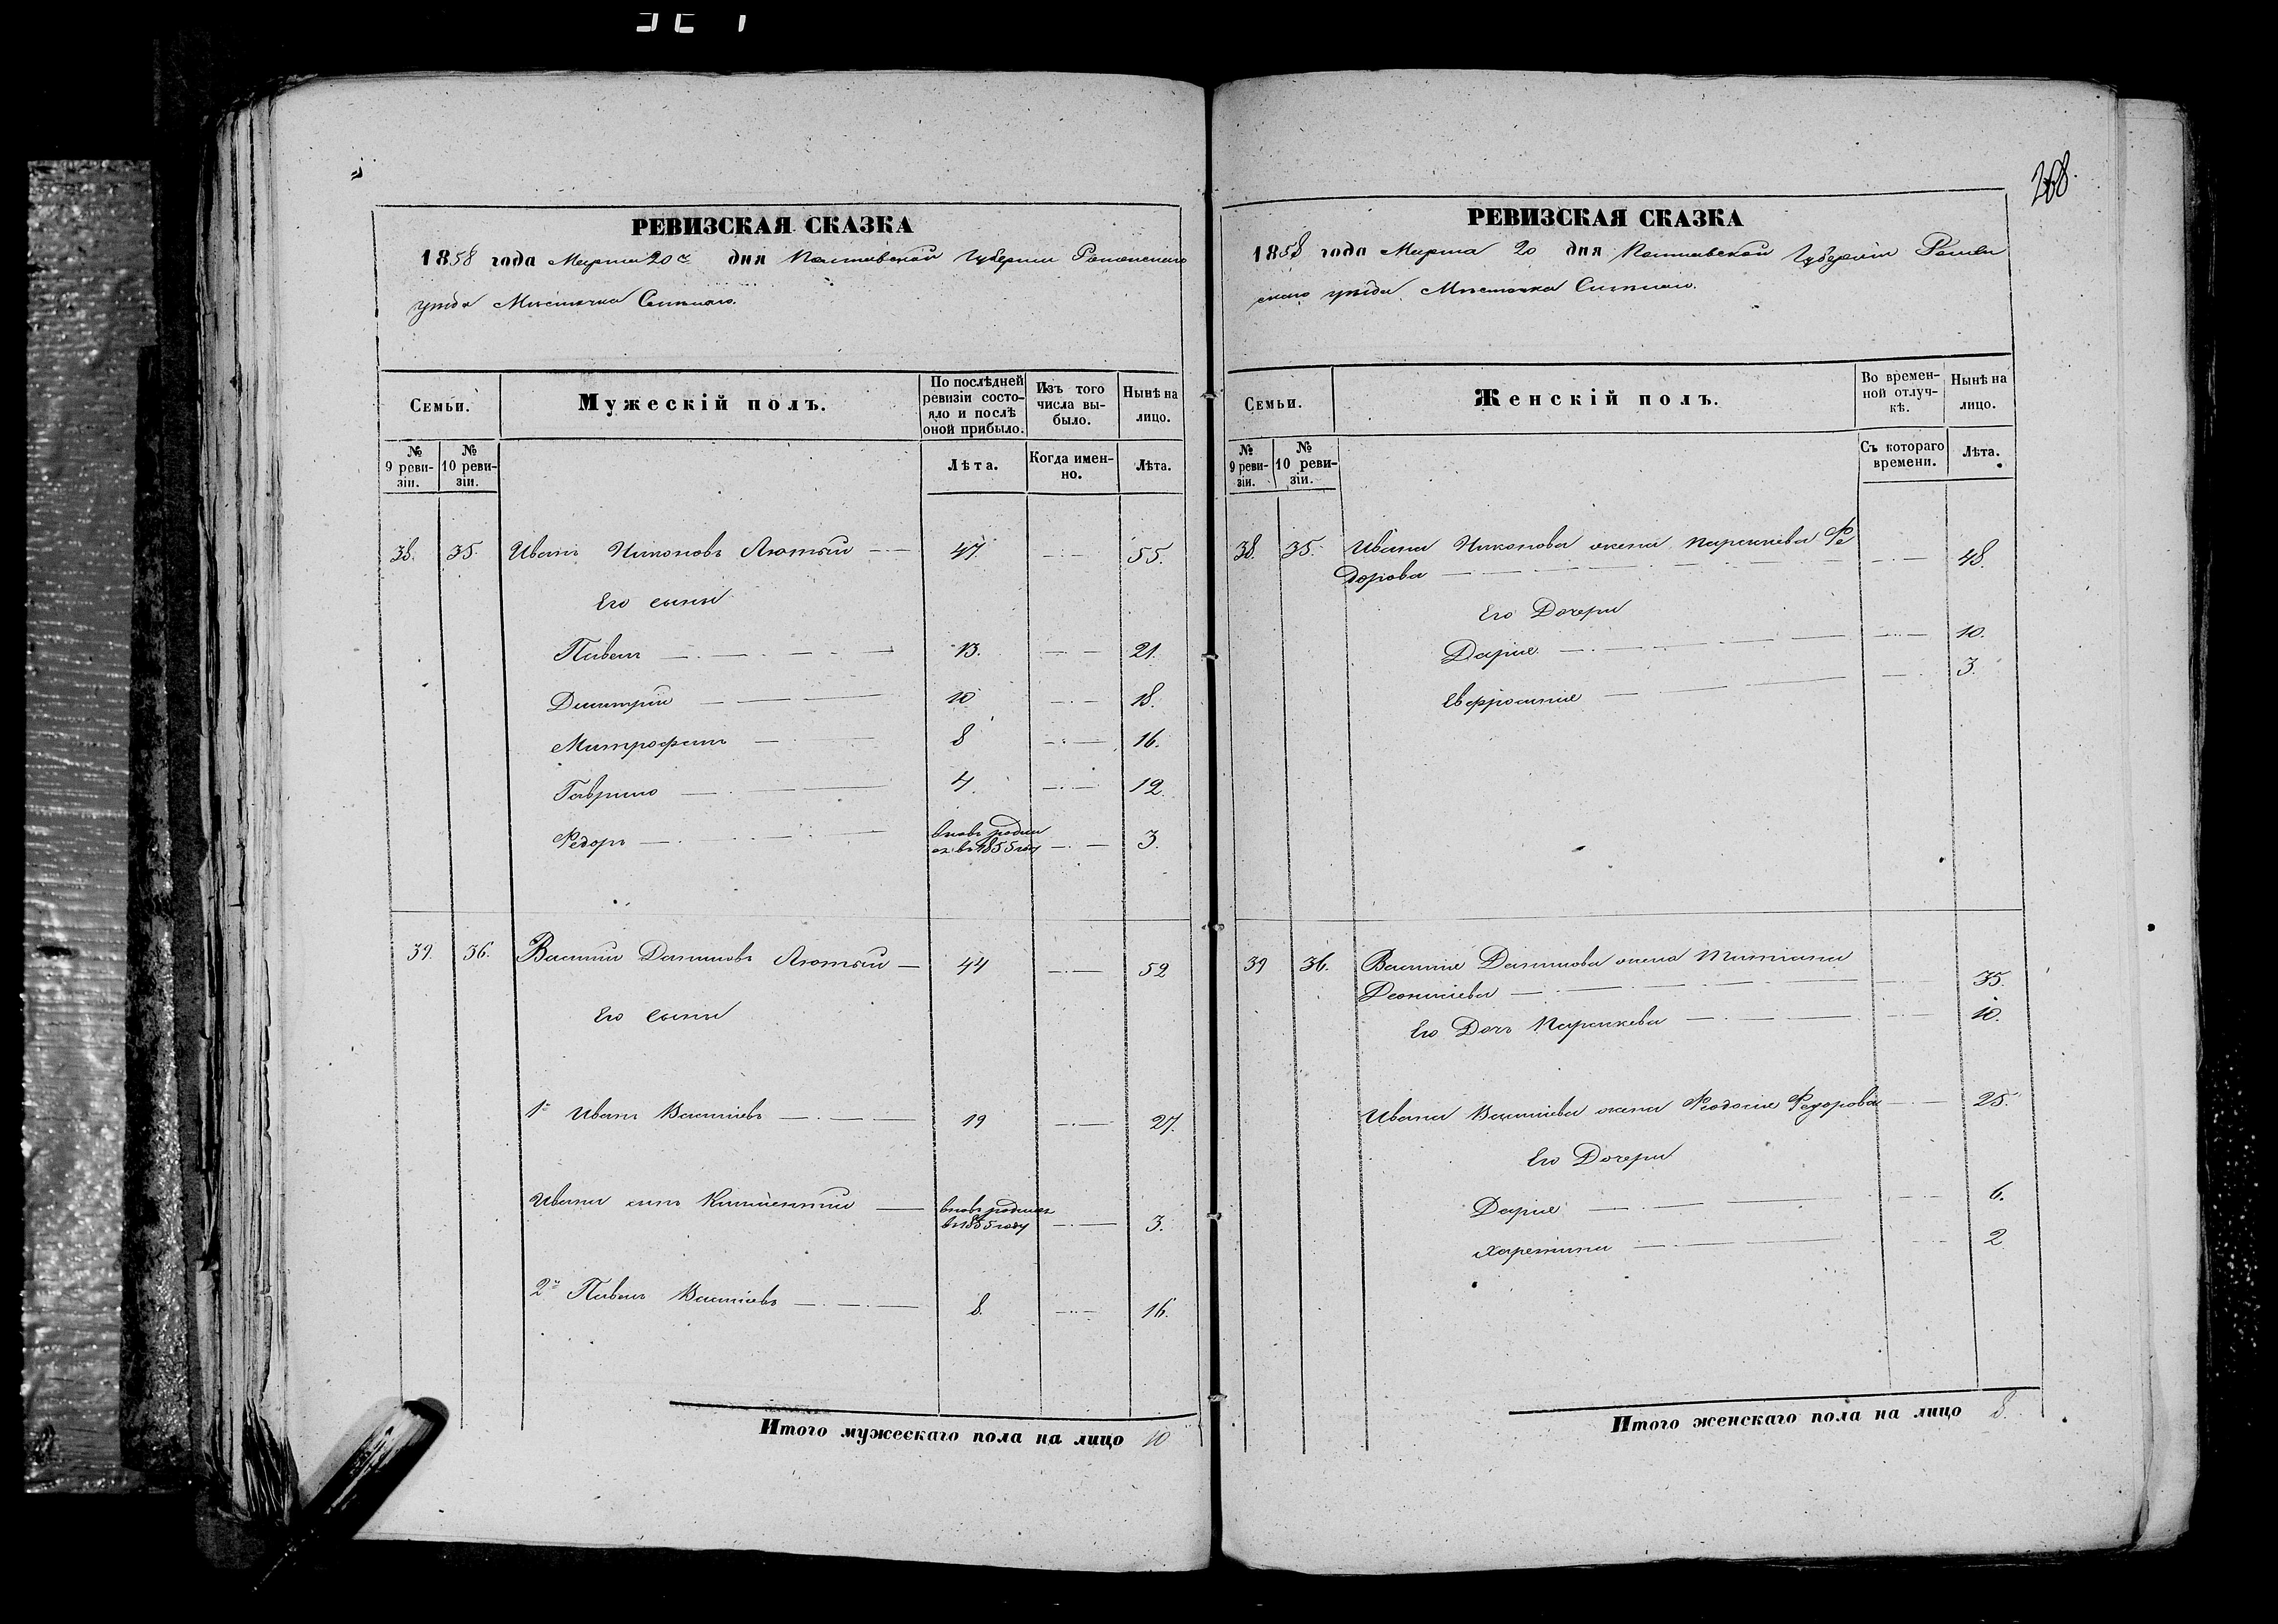 208.
РЕВИЗСКАЯ СКАЗКА
1858 года Марта 20 дня Полтавской Губернии Роменскаго
уезда Местечка Смелаго.
Семьи.
Мужескій полъ.
По послѣдней ревизіи состояло и послѣ оной прибыло.
Изъ того числа выбыло.
Нынѣ на лицо.
№ 9 ревизіи.
№ 10 ревизіи.
Лѣта.
Когда именно.
Лѣта.
38. 35. Иванъ Никоновъ Лютый 47. 55.
Его сыны
Павелъ 13. 21.
Димитрій 10 18.
Митрофанъ 8 16.
Гаврило 4. 12.
Федоръ вновь родил
ся въ 1855 году 3.
39. 36. Василій Даниловъ Лютый 44 52
Его сыны
1й Иванъ Васильевъ 19 27.
Ивана сынъ вновь родился
въ 1855 году 3.
2й Павелъ Васильевъ 8. 16.
Итого мужескаго пола на лицо 10
РЕВИЗСКАЯ СКАЗКА
1858 года Марта 20 дня Полтавской Губерніи Ромен
скаго уезда Местечка Смелаго.
Семьи.
Женскій полъ.
Во временной отлучкѣ.
Нынѣ на лицо.
№ 9 ревизіи.
№ 10 ревизіи.
Съ котораго времени.
Лѣта.
38. 35. Ивана Никонова жена Параскева Фе
дорова 48.
Его Дочери
Дарія 10.
Евфросинія 3.
39 36. Василія Данилова жена Татіана
35.
Его Дочь Параскева 10.
Ивана Васильева жена Феодосія Федорова 25.
Его Дочери
Дарія 6.
Харитина 2
Итого женскаго пола на лицо 8.